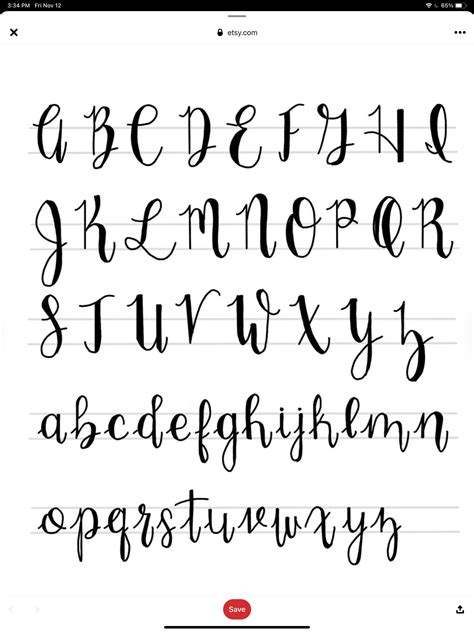 3:34 PM Fri Nov 12 65%
etsy.com
A B C D E F G H I
J K L M N O P Q R
S T U V W X Y Z
a b c d e f g h i j k l m n
o p q r s t u v w x y z
Save